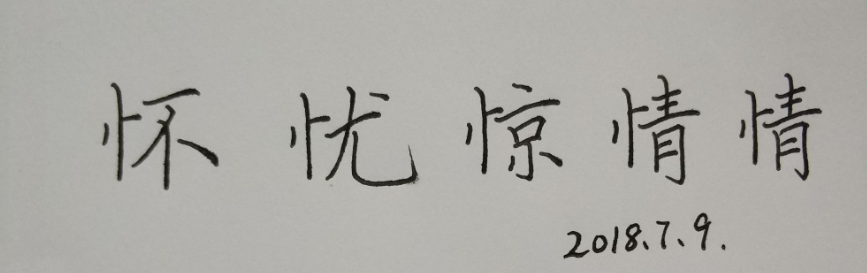 怀忧惊情情
2018、7、9.